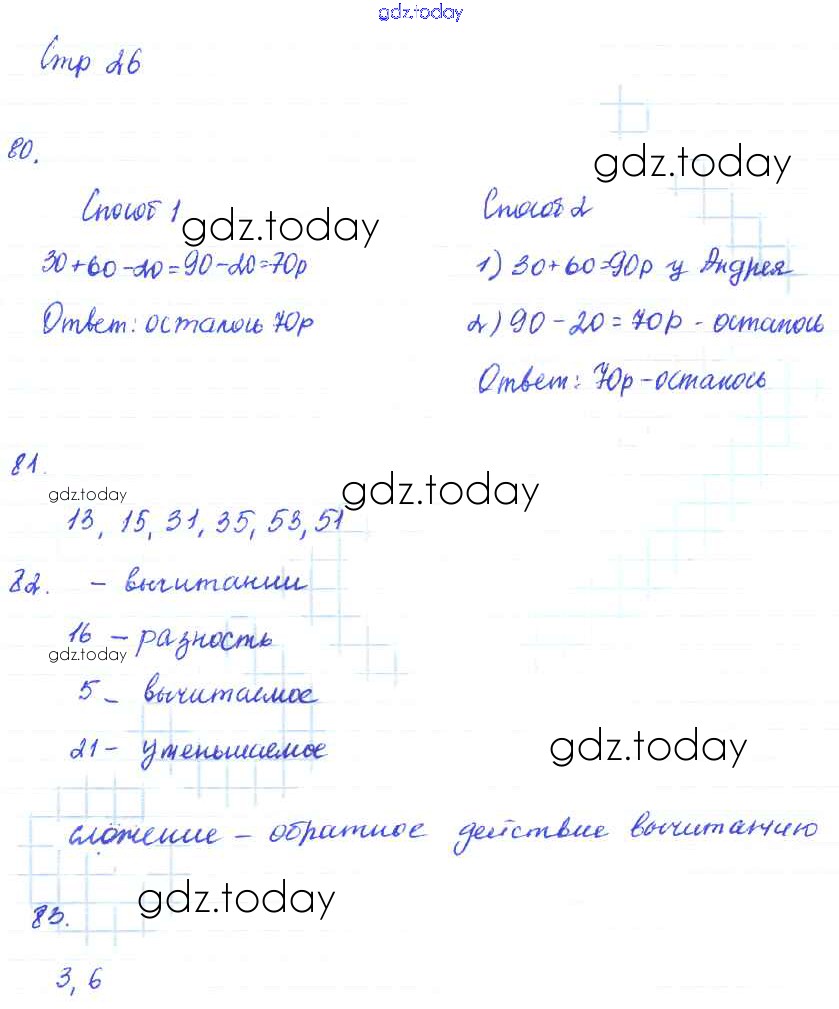 gdz.today
Стр 26
80.
gdz.today
Способ 1
Способ 2
gdz.today
30+60-20=90-20=70р
1) 30+60=90р у Андрея
Ответ: осталось 70р
2) 90-20=70р - осталось
Ответ: 70р-осталось
81.
gdz.today
gdz.today
13, 15, 31, 35, 53, 51
82. - вычитании
16 - разность
gdz.today
5 - вычитаемое
21 - уменьшаемое
gdz.today
сложение - обратное действие вычитанию
gdz.today
83.
3, 6